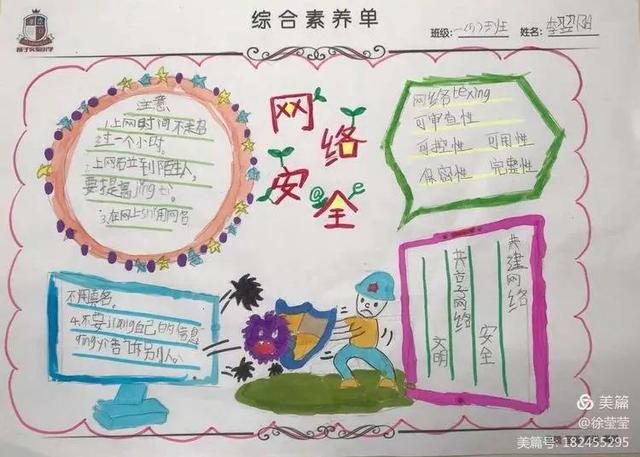 综合素养单
班级:
姓名:
网络安全
注意
1.上网时间不要超
过一个小时。
2.上网若碰到陌生人,
要提高jing ti。
3.在网上shi用网名
不用真名。
4.不要jiang自己的信息
告诉别人。
网络te xing
可审查性
可控性 可用性
保密性 完整性
共建网络
安全
共享网络
文明
美篇
@徐莹莹
美篇号: 182455295